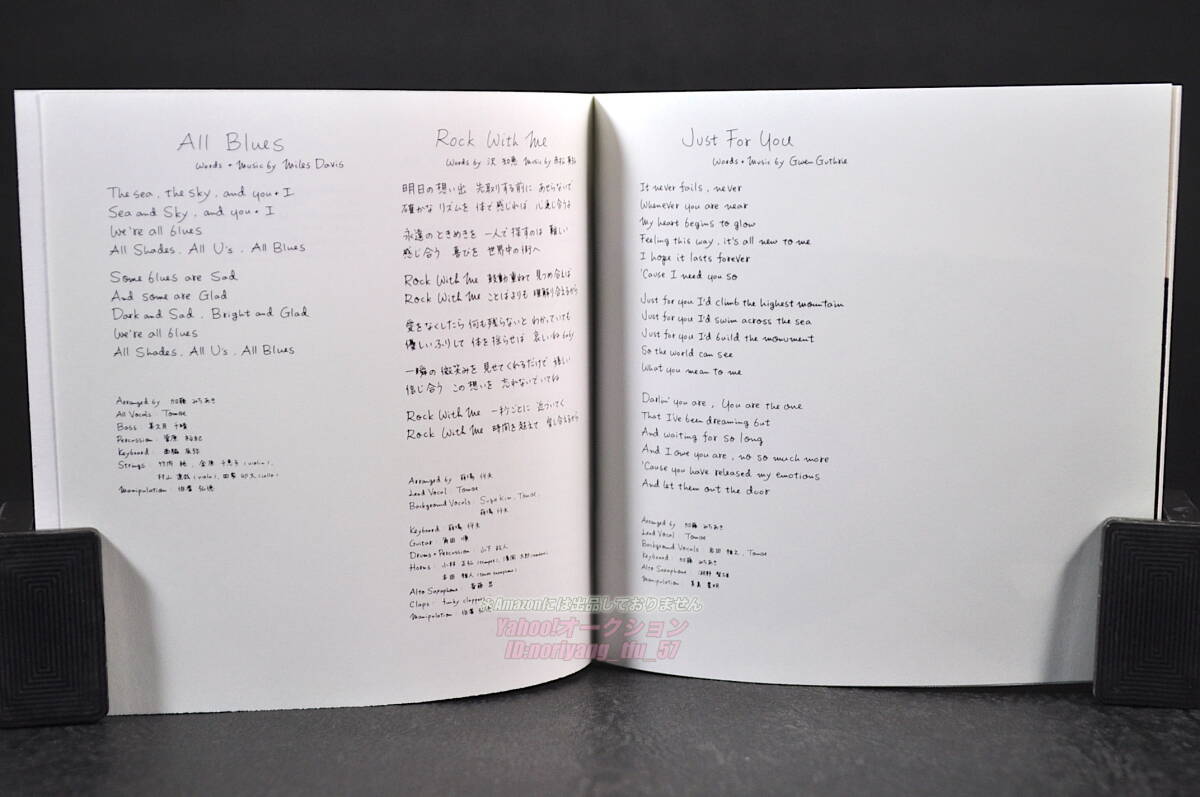 All Blues
Words + Music by Miles Davis
The sea, the sky, and you + I
Sea and Sky, and you + I
We're all blues
All Shades, All U's, All Blues
Some blues are Sad
And some are Glad
Dark and Sad, Bright and Glad
We're all blues
All Shades, All U's, All Blues
Arranged by 加藤 みちあき
All Vocals : Tomoe
Bass : 美久月 千晴
Percussion : 菅原 裕紀
Keyboard : 西脇 辰弥
Strings : 竹内 純, 金原 千恵子 (violin),
村山 達哉 (viola), (cello)
Manipulation :
Rock With Me
Words by 沢 知恵 Music by
明日の想い出 先取りする前に あせらないで
確かな リズムを 体で感じれば 心通じ合うよ
永遠の ときめきを 一人で探すのは 難しい
感じ合う 喜びを 世界中の街へ
Rock With Me 鼓動重ねて 見つめ合えば
Rock With Me ことばよりも 理解り合えるから
愛をなくしたら 何も残らないと わかっていても
優しいふりして 体を揺らせば 哀しいね baby
一瞬の 微笑みを 見せてくれるだけで 嬉しい
信じ合う この想いを 忘れないでいてね
Rock With Me 一秒ごとに 近づいてく
Rock With Me 時間を越えて 愛し合えるから
Arranged by 羽場 仁志
Lead Vocal : Tomoe
Background Vocals : Suga Kim, Tomoe,
羽場 仁志
Keyboard : 羽場 仁志
Guitar : 角田 順
Drums + Percussion : 山下 政人
Horns : 小林 正弘 (trumpet), 清岡 太郎 (trombone)
吉田 雅人 (tenor saxophone)
Alto Saxophone : 斎藤 昌
Claps : funky clappers
Manipulation :
Just For You
Words + Music by Gwen Guthrie
It never fails, never
Whenever you are near
My heart begins to glow
Feeling this way, it's all new to me
I hope it lasts forever
'Cause I need you so
Just for you I'd climb the highest mountain
Just for you I'd swim across the sea
Just for you I'd build the monument
So the world can see
What you mean to me
Darlin' you are, You are the one
That I've been dreaming but
And waiting for so long
And I love you are, no so much more
'Cause you have released my emotions
And let them out the door
Arranged by 加藤 みちあき
Lead Vocal : Tomoe
Background Vocals : 岩田 雅之, Tomoe
Keyboard : 加藤 みちあき
Alto Saxophone : 淵野 繁雄
Manipulation :
※Amazonには出品しておりません
Yahoo!オークション
ID:noriyang_tfu_57